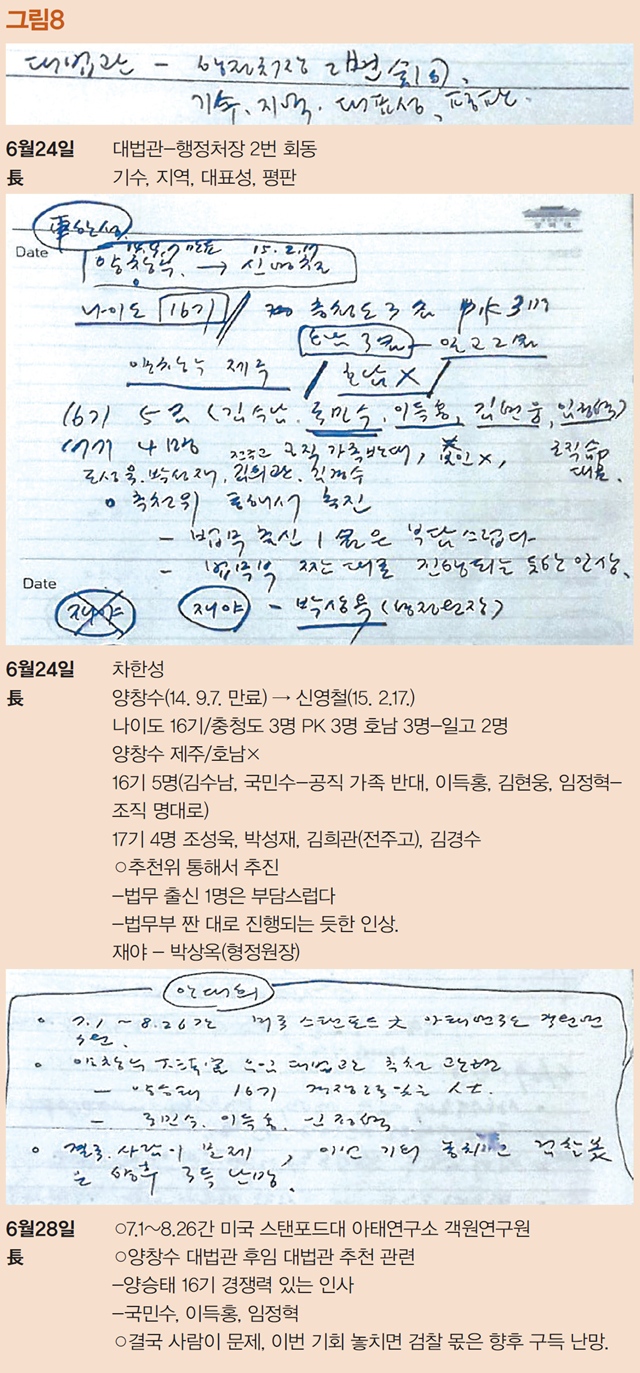 그림8
대법관 – 행정처장 2번 회동.
기수, 지역, 대표성, 평판.
6월24일 대법관–행정처장 2번 회동
長 기수, 지역, 대표성, 평판
車한성
Date
14.9.7 만료 15.2.17
양창수 → 신영철
나이도 16기 // 충청도 3명 PK 3명
호남 3명 – 일고 2명
양창수 제주 / 호남 X
16기 5명 (김수남, 국민수, 이득홍, 김현웅, 임정혁)
17기 4명 전주고 공직 가족반대,
조성욱, 박성재, 김희관, 김경수
○ 추천위 통해서 추진
– 법무 출신 1명은 부담스럽다
– 법무부 짠 대로 진행되는 듯한 인상.
Date
재야 재야 – 박상옥 (형정원장)
6월24일 차한성
長 양창수(14. 9.7. 만료) → 신영철(15. 2.17.)
나이도 16기/충청도 3명 PK 3명 호남 3명–일고 2명
양창수 제주/호남×
16기 5명(김수남, 국민수–공직 가족 반대, 이득홍, 김현웅, 임정혁–
조직 명대로)
17기 4명 조성욱, 박성재, 김희관(전주고), 김경수
○추천위 통해서 추진
–법무 출신 1명은 부담스럽다
–법무부 짠 대로 진행되는 듯한 인상.
재야 – 박상옥(형정원장)
안대희
○ 7.1 ~ 8.26간 미국 스탠포드大 아태연구소 객원연구원.
○ 양창수 후임 대법관 추천 관련
– 양승태 16기 경쟁력 있는 人士.
– 국민수, 이득홍, 임정혁.
○ 결국 사람이 문제, 이번 기회 놓치면 검찰 몫
은 향후 구득 난망.
6월28일 ○7.1~8.26간 미국 스탠포드대 아태연구소 객원연구원
長 ○양창수 대법관 후임 대법관 추천 관련
–양승태 16기 경쟁력 있는 인사
–국민수, 이득홍, 임정혁
○결국 사람이 문제, 이번 기회 놓치면 검찰 몫은 향후 구득 난망.